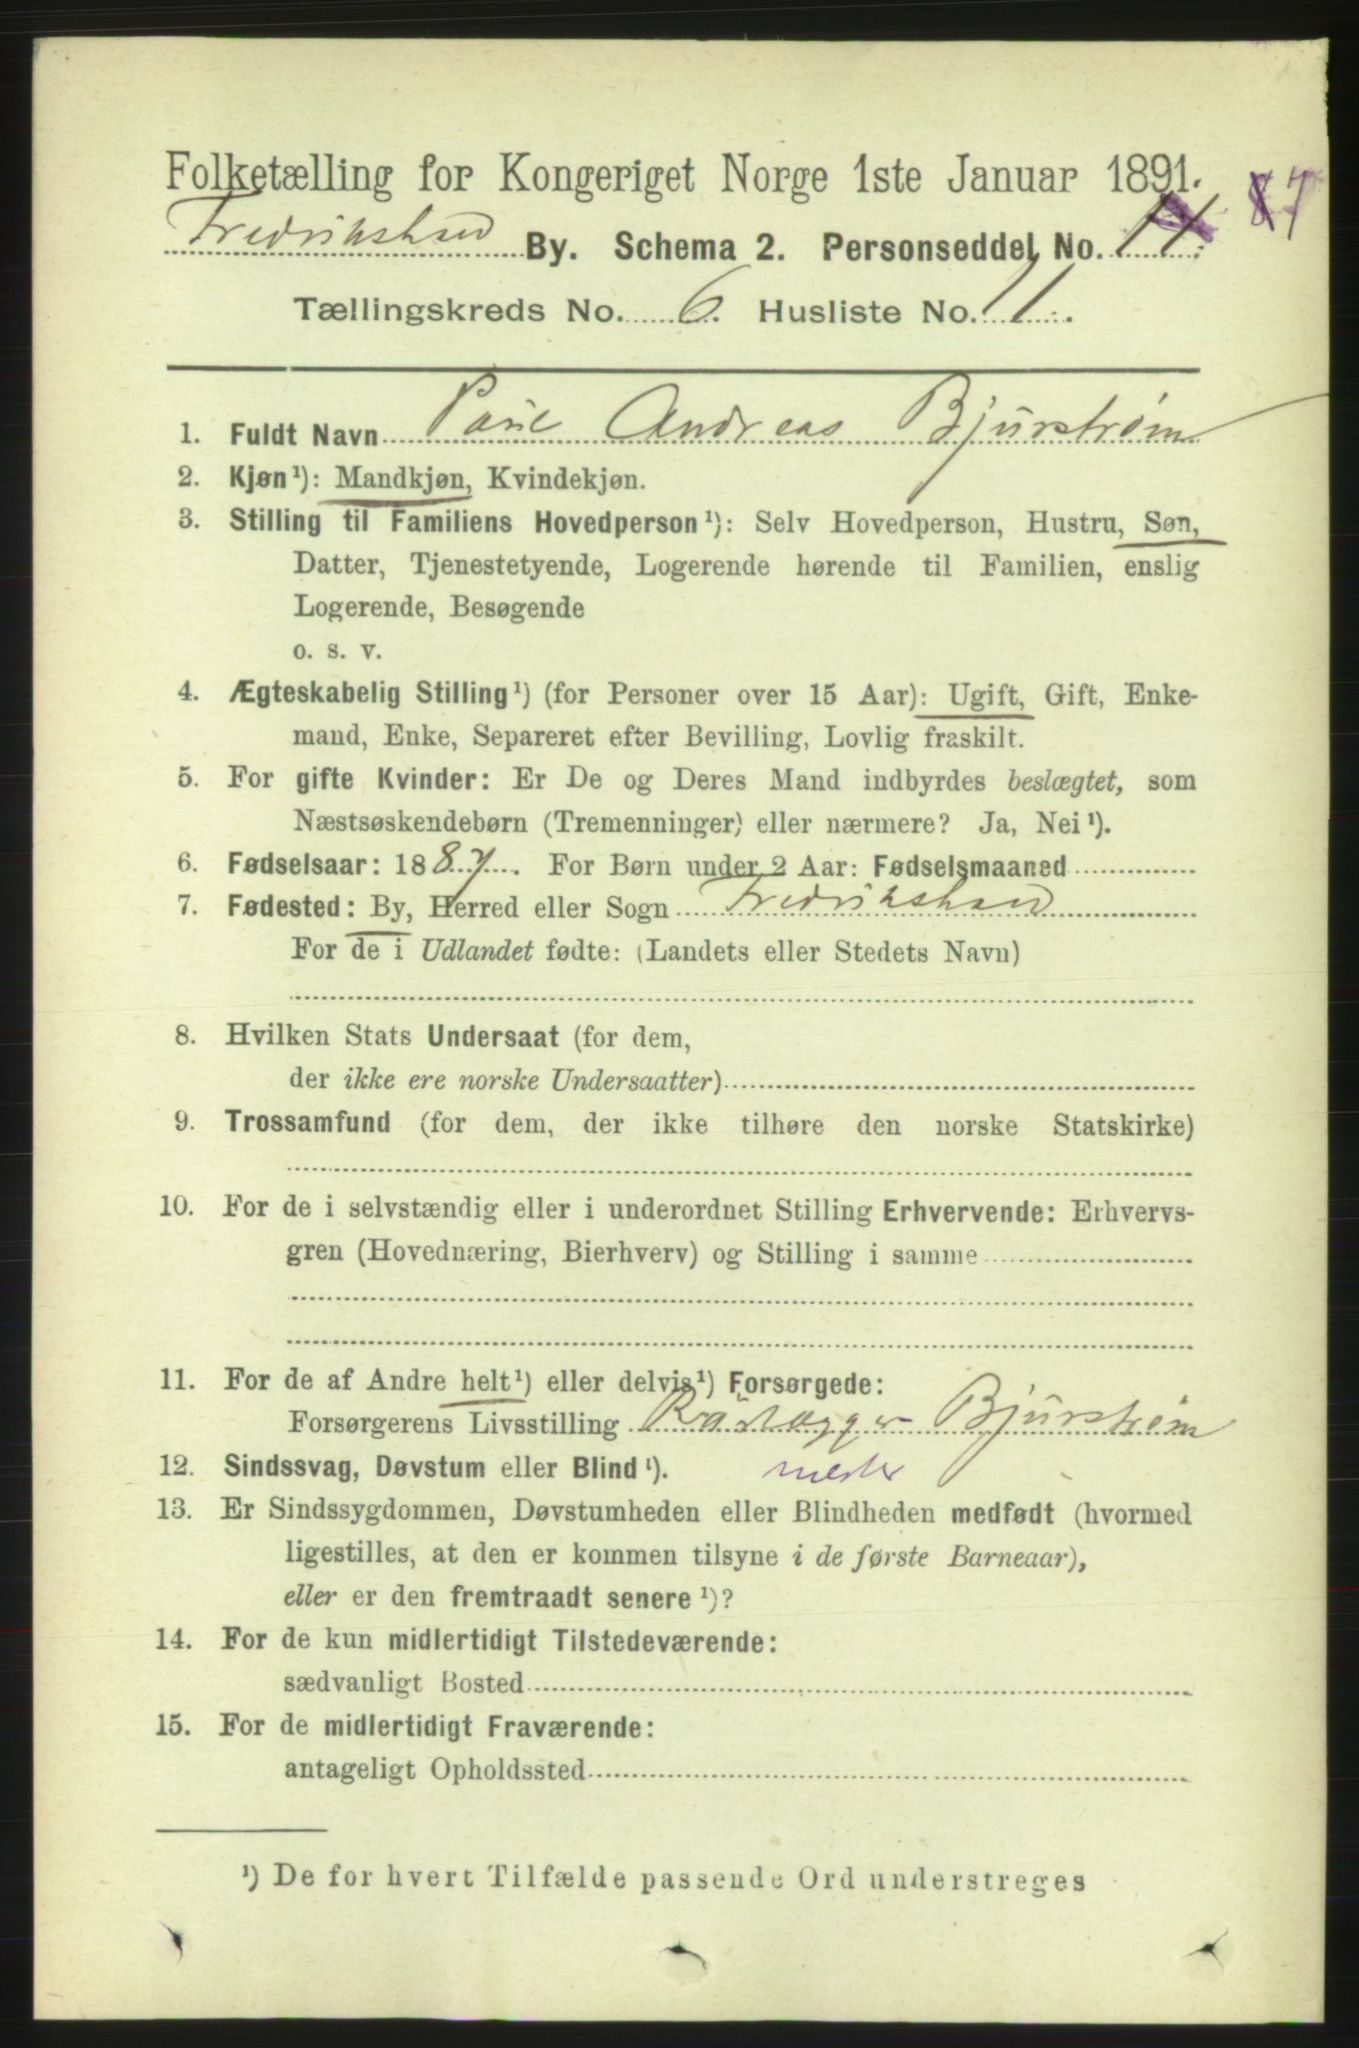 Folketælling for Kongeriget Norge 1ste Januar 1891.
Fredrikshald By. Schema 2. Personseddel No. 87
Tællingskreds No. 6. Husliste No. 11.
1. Fuldt Navn Paul Andreas Bjurstrøm
2. Kjøn¹): Mandkjøn, Kvindekjøn.
3. Stilling til Familiens Hovedperson¹): Selv Hovedperson, Hustru, Søn,
Datter, Tjenestetyende, Logerende hørende til Familien, enslig
Logerende, Besøgende
o. s. v.
4. Ægteskabelig Stilling¹) (for Personer over 15 Aar): Ugift, Gift, Enke-
mand, Enke, Separeret efter Bevilling, Lovlig fraskilt.
5. For gifte Kvinder: Er De og Deres Mand indbyrdes beslægtet, som
Næstsøskendebørn (Tremenninger) eller nærmere? Ja, Nei¹).
6. Fødselsaar: 1887. For Børn under 2 Aar: Fødselsmaaned
7. Fødested: By, Herred eller Sogn Fredrikshald
For de i Udlandet fødte: (Landets eller Stedets Navn)
8. Hvilken Stats Undersaat (for dem,
der ikke ere norske Undersaatter)
9. Trossamfund (for dem, der ikke tilhøre den norske Statskirke)
10. For de i selvstændig eller i underordnet Stilling Erhvervende: Erhvervs-
gren (Hovednæring, Bierhverv) og Stilling i samme
11. For de af Andre helt¹) eller delvis¹) Forsørgede:
Forsørgerens Livsstilling Brolægger Bjurstrøm
12. Sindssvag, Døvstum eller Blind¹). mester
13. Er Sindssygdommen, Døvstumheden eller Blindheden medfødt (hvormed
ligestilles, at den er kommen tilsyne i de første Barneaar),
eller er den fremtraadt senere¹)?
14. For de kun midlertidigt Tilstedeværende:
sædvanligt Bosted
15. For de midlertidigt Fraværende:
antageligt Opholdssted
¹) De for hvert Tilfælde passende Ord understreges